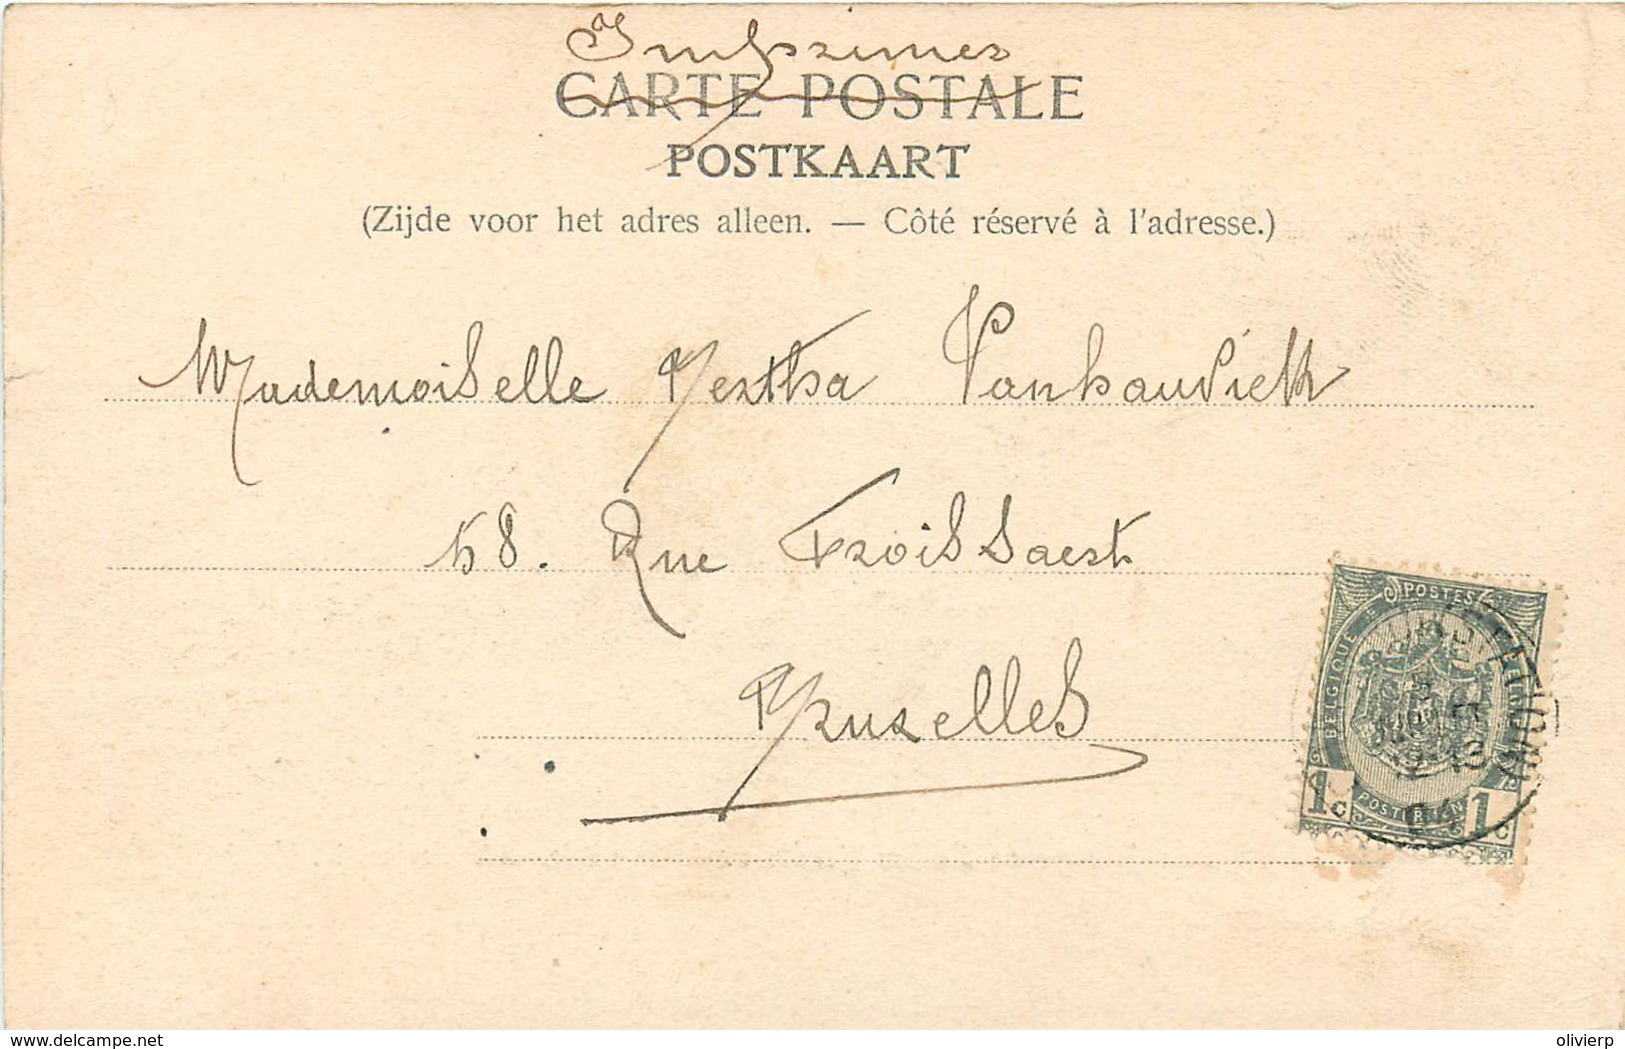 Imprimés
CARTE POSTALE
POSTKAART
(Zijde voor het adres alleen. — Côté réservé à l'adresse.)
Mademoiselle Bertha
58. Rue Froissaert
Bruxelles
POSTES
BELGIQUE
1c
1c
delcampe.net
olivierp